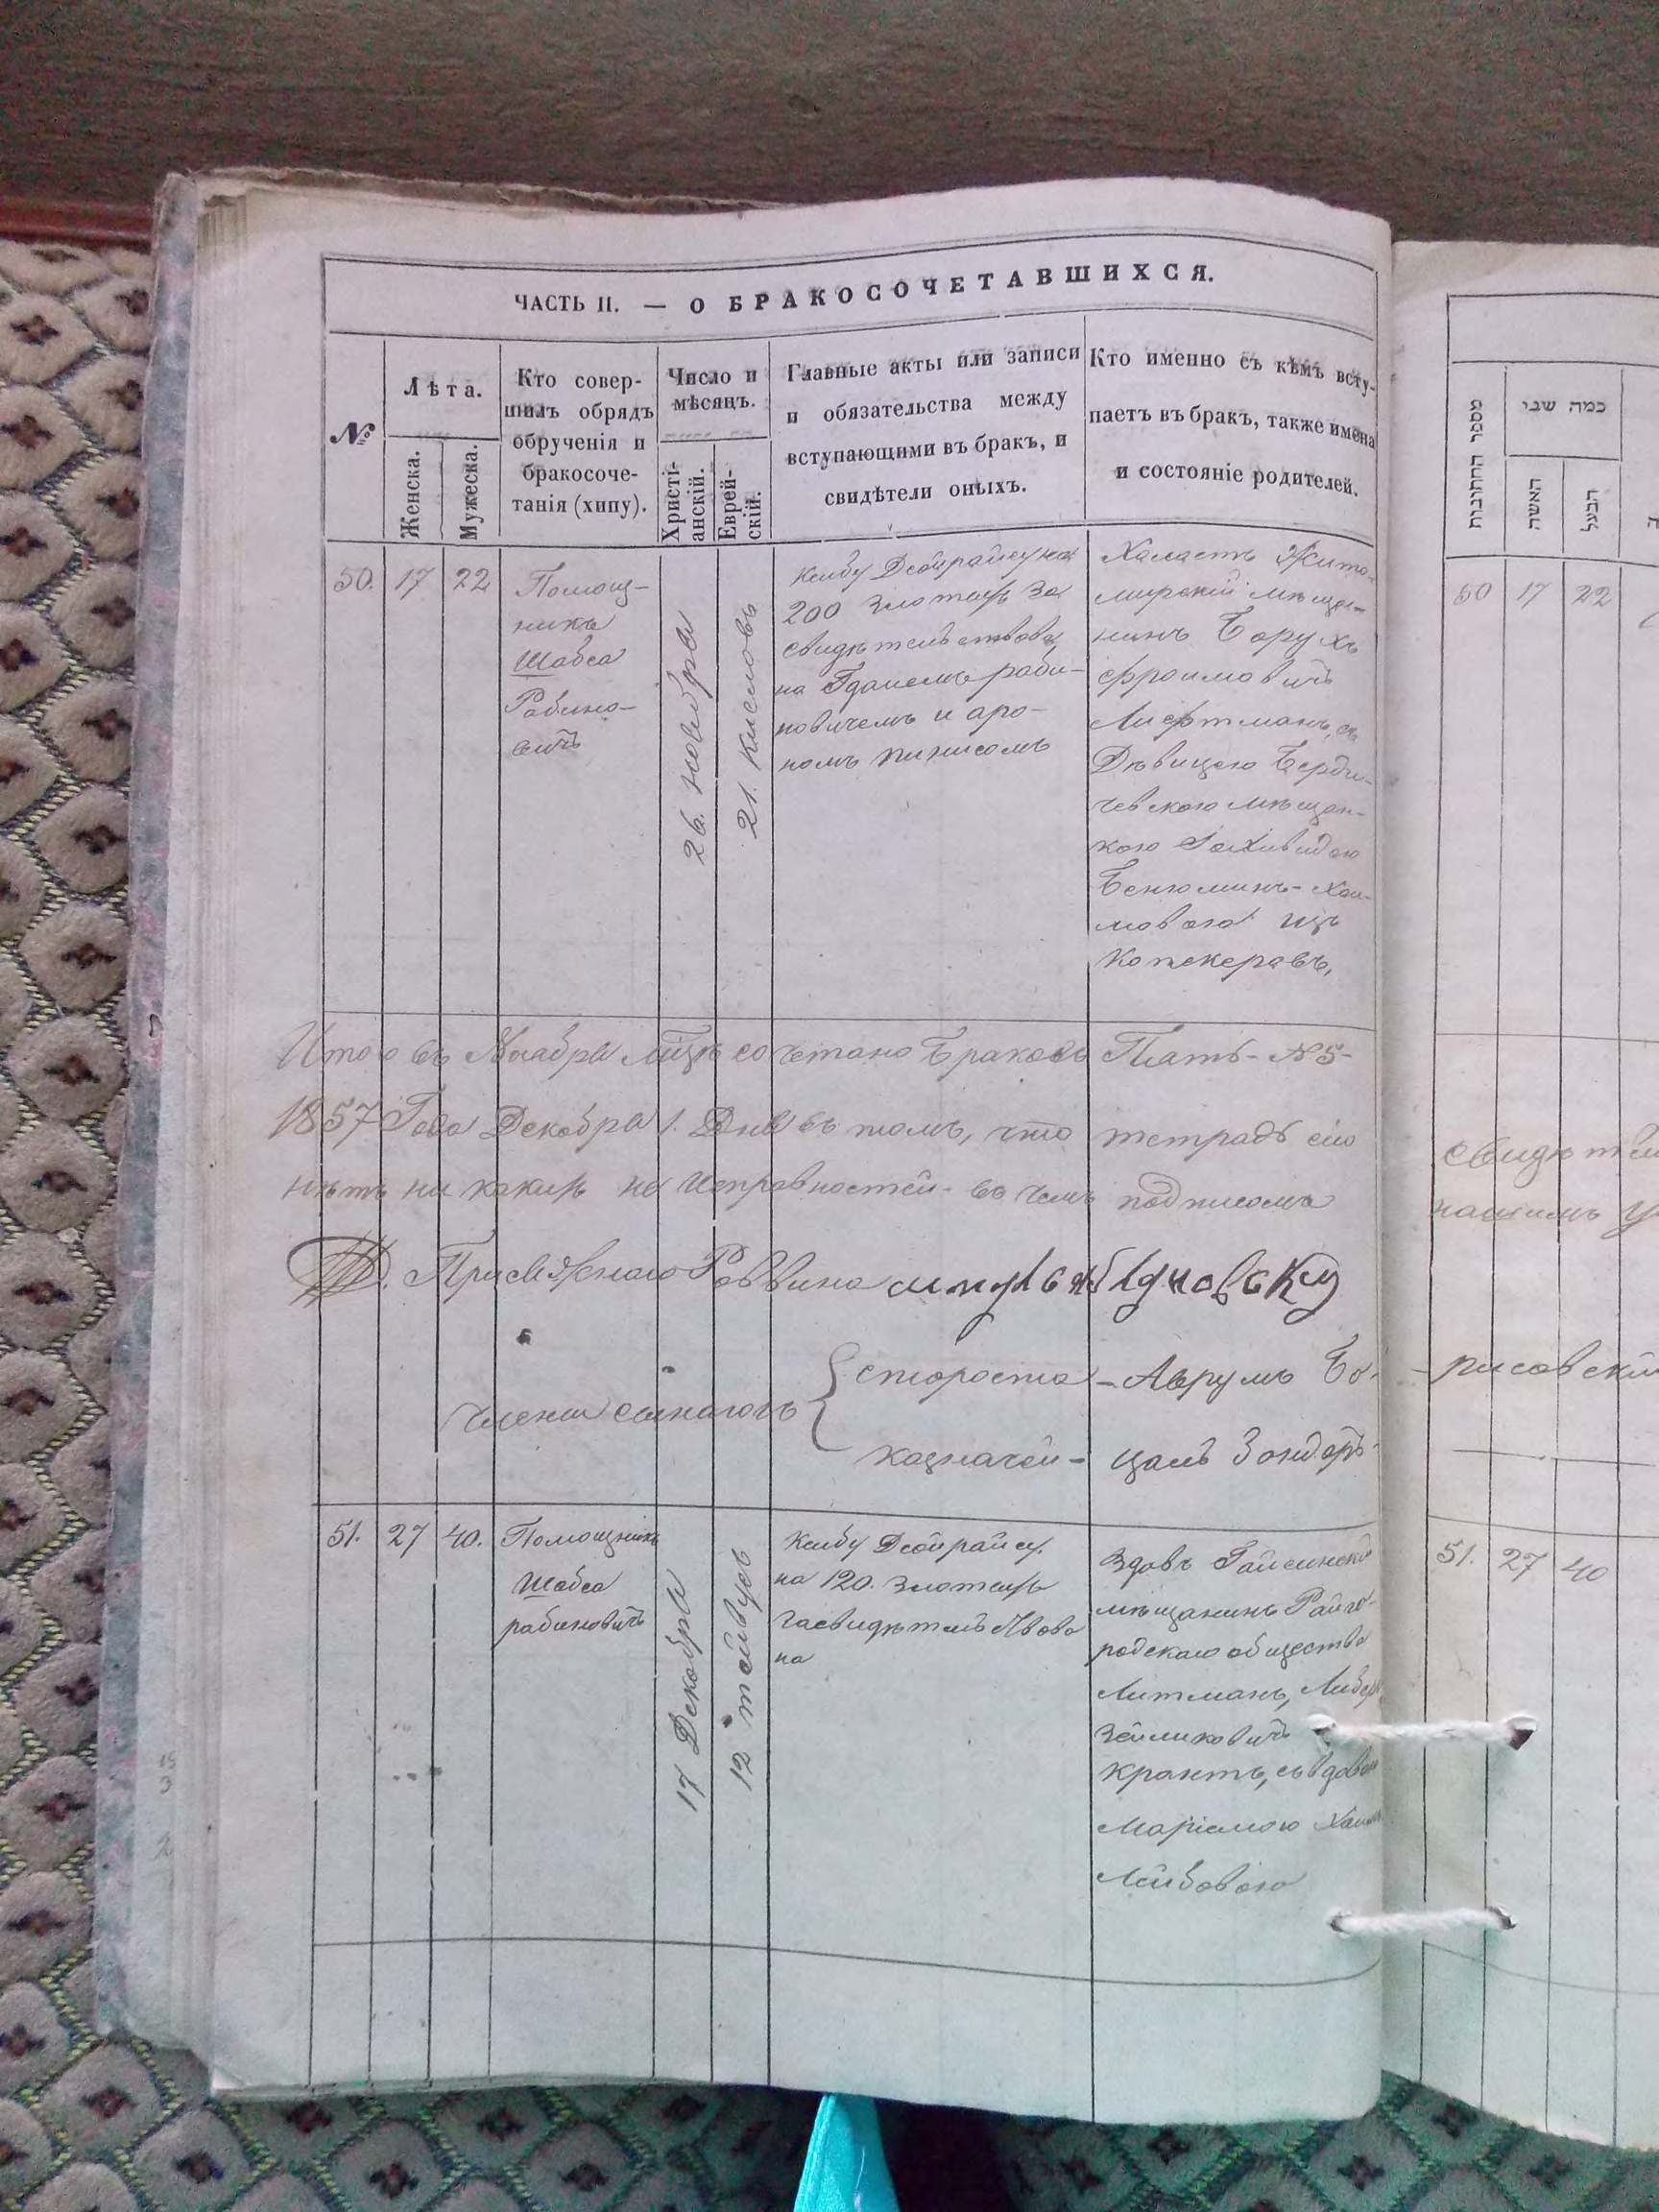 ЧАСТЬ II. — О БРАКОСОЧЕТАВШИХСЯ.
№
Лѣта.
Женска.
Мужеска.
Кто совер-
шилъ обрядъ
обрученія и
бракосоче-
танія (хипу).
Число и
мѣсяцъ.
Христі-
анскій.
Еврей-
скій.
Главные акты или записи
и обязательства между
вступающими въ бракъ, и
свидѣтели оныхъ.
Кто именно съ кѣмъ всту-
паетъ въ бракъ, также имена
и состояніе родителей.
50.
17
22
Помощ-
никъ
Шабса
Рабино-
вичъ
26. Ноября
21. Кислевъ
Ксибу Деойрайсу на
200 злотыхъ за
свидѣтельствова
на Гданемъ раби-
новичемъ и аро-
номъ пинисомъ
Халастъ Жито-
мирскій мѣща-
нинъ Борухъ
Фроимовичъ
Лифтманъ, съ
Дѣвицею Берди-
чевскою мѣщан-
кою
Бенюминъ-Хаи-
мовою изъ
Котекеравъ,
Итого въ Ноябрѣ сочетано Браковъ Пять-№5-
1857 Года Декабря 1. Дня въ томъ, что тетрадь сію
нѣтъ ни какихъ не исправностей- въ чемъ подписомъ
Присяжнаго Раввина
члены синагогъ
староста - Аврумъ Бо-
казначей - Цаль Зондоръ-
51.
27
40.
Помощникъ
Шабса
рабиновичъ
17 Декабря
12 тейвусъ
Ксибу Деойрайсу
на 120. злотыхъ
на
вдовъ Гайсинскій
мѣщанинъ Райго-
родскаго общества
Литманъ, Либеръ
Зейликовичъ
Крантъ, съ вдовою
Маріемою Хаим
Лейбовою
מספר החתונות
כמה שני
האשה
הבעל
50
17
22
свидѣтел
нашимъ у
-рисовскій
51.
27
40